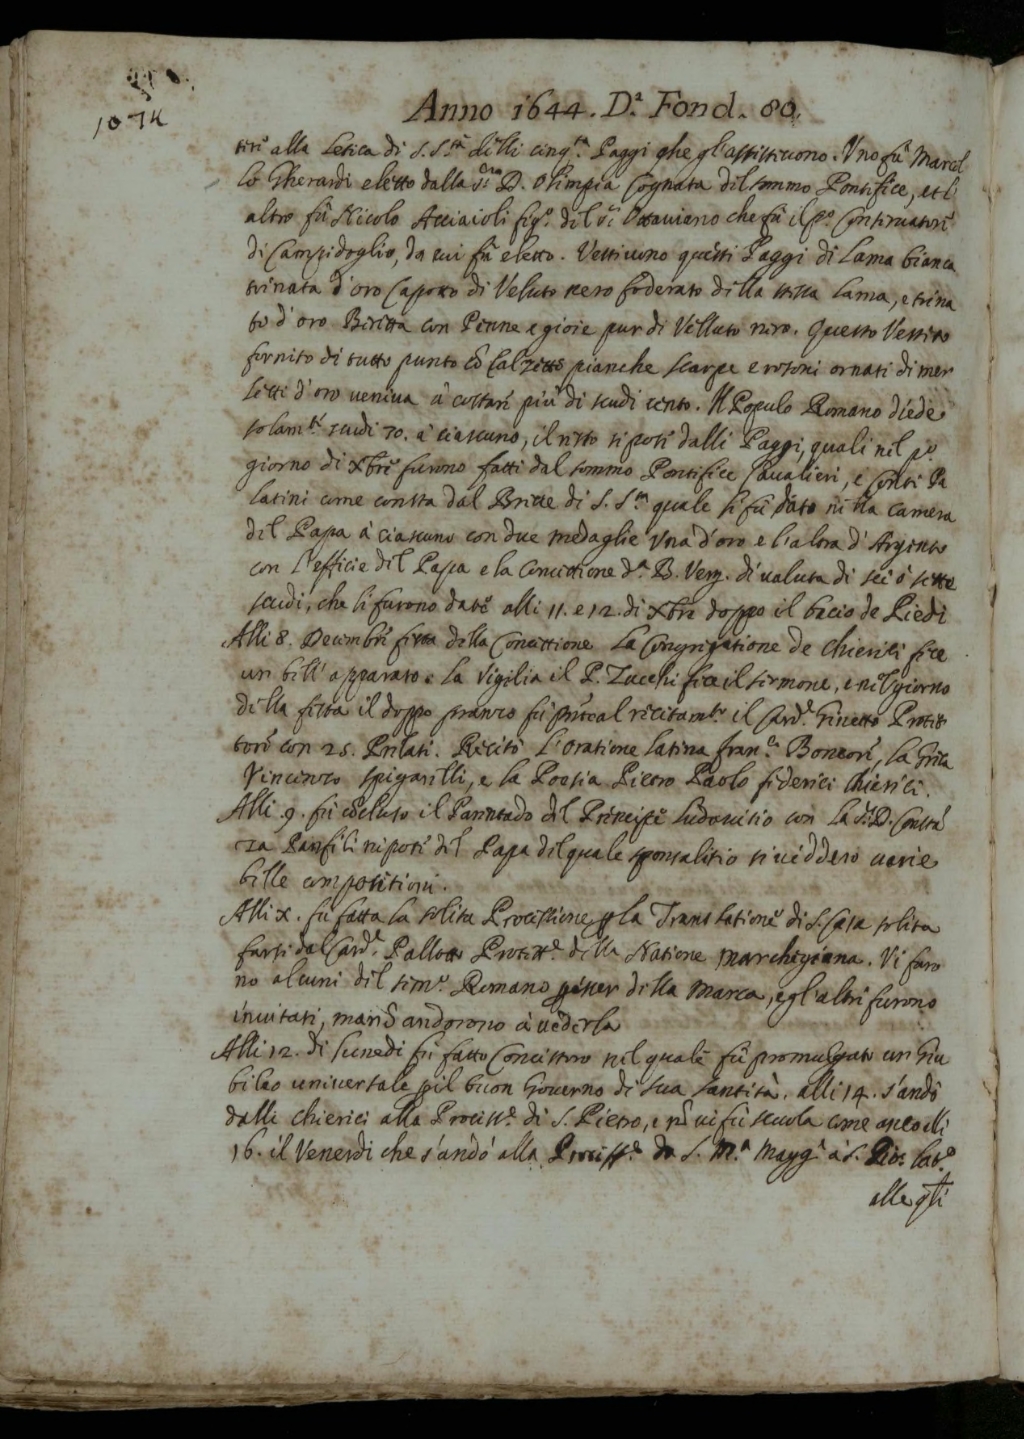 1074
Anno 1644. D.ª Fond. 80.
alla Letica di S. S.tà delli cinq.ta Paggi che gl'assistevono. Uno fù Marcel
lo Gherardi eletto dalla D. Olimpia Cognata del sommo Pontefice, et l'
altro fù Nicolo Acciaioli fig.o del Ottaviano che fù il p.o
di Campidoglio, da cui fù eletto. Vestivono questi Paggi di Lama bianca
trinata d'oro Capotto di Veluto nero foderato della stessa lama, e trina
to d'oro Biretta con Penne e gioie pur di Velluto nero. Questo Vestito
fornito di tutto punto cō Calzette bianche scarpe e rosoni ornati di mer
letti d'oro veniva à costare più di scudi cento. Il Populo Romano diede
solam.te scudi 70. à ciascuno, il resto si posi dalli Paggi, quali nel p.o
giorno di Xbre furono fatti dal sommo Pontefice Cavalieri, e Conti Pa
latini come consta dal Breve di S. S.tà quale li fù dato nella camera
del Papa à ciascuno con due medaglie una d'oro e l'altra d'Argento
con l'efficie del Papa e la Concettione d.a B. Verg. di valuta di sei ò sette
scudi, che li furono date alli 11. e 12. di Xbre doppo il bacio de Piedi
Alli 8. Decembre festa della Concettione la Congregatione de Chierici fece
un bell'apparato. La Vigilia il P. Zucchi fece il sermone, e nel giorno
della festa il doppo pranzo fù al recitam.to il Card.e Ginetto Protet
tore con 25. Prelati. Recitò l'oratione latina Fran.co Boncori, la
Vincenzo Spigarelli, e la Poesia Pietro Paolo Federici Chierici.
Alli 9. fù cōcluso il Parentado del Principe Ludovisio con la D. Costā
za Panfili nipote del Papa del quale sponsalitio si viddero varie
belle compositioni.
Alli X. fù fatta la solita Processione p la Translatione di S. Casa solita
farsi dal Card.e Pallotto Protett.e della Natione Marchegiana. Vi furo
no alcuni del sem.o Romano della Marca, e gl'altri furono
invitati, mà nō andorono à vederla
Alli 12. di Lunedi fù fatto Concistoro nel quale fù promulgato un Giu
bileo universale p il buon Governo di Sua Santità. alli 14. s'andò
dalli Chierici alla Process.e di S. Pietro, e nō vi fù scuola come anco alli
16. il Venerdi che s'andò alla Process.e da S. M.a Magg.e à S. Gio: Lat.o
alle qli